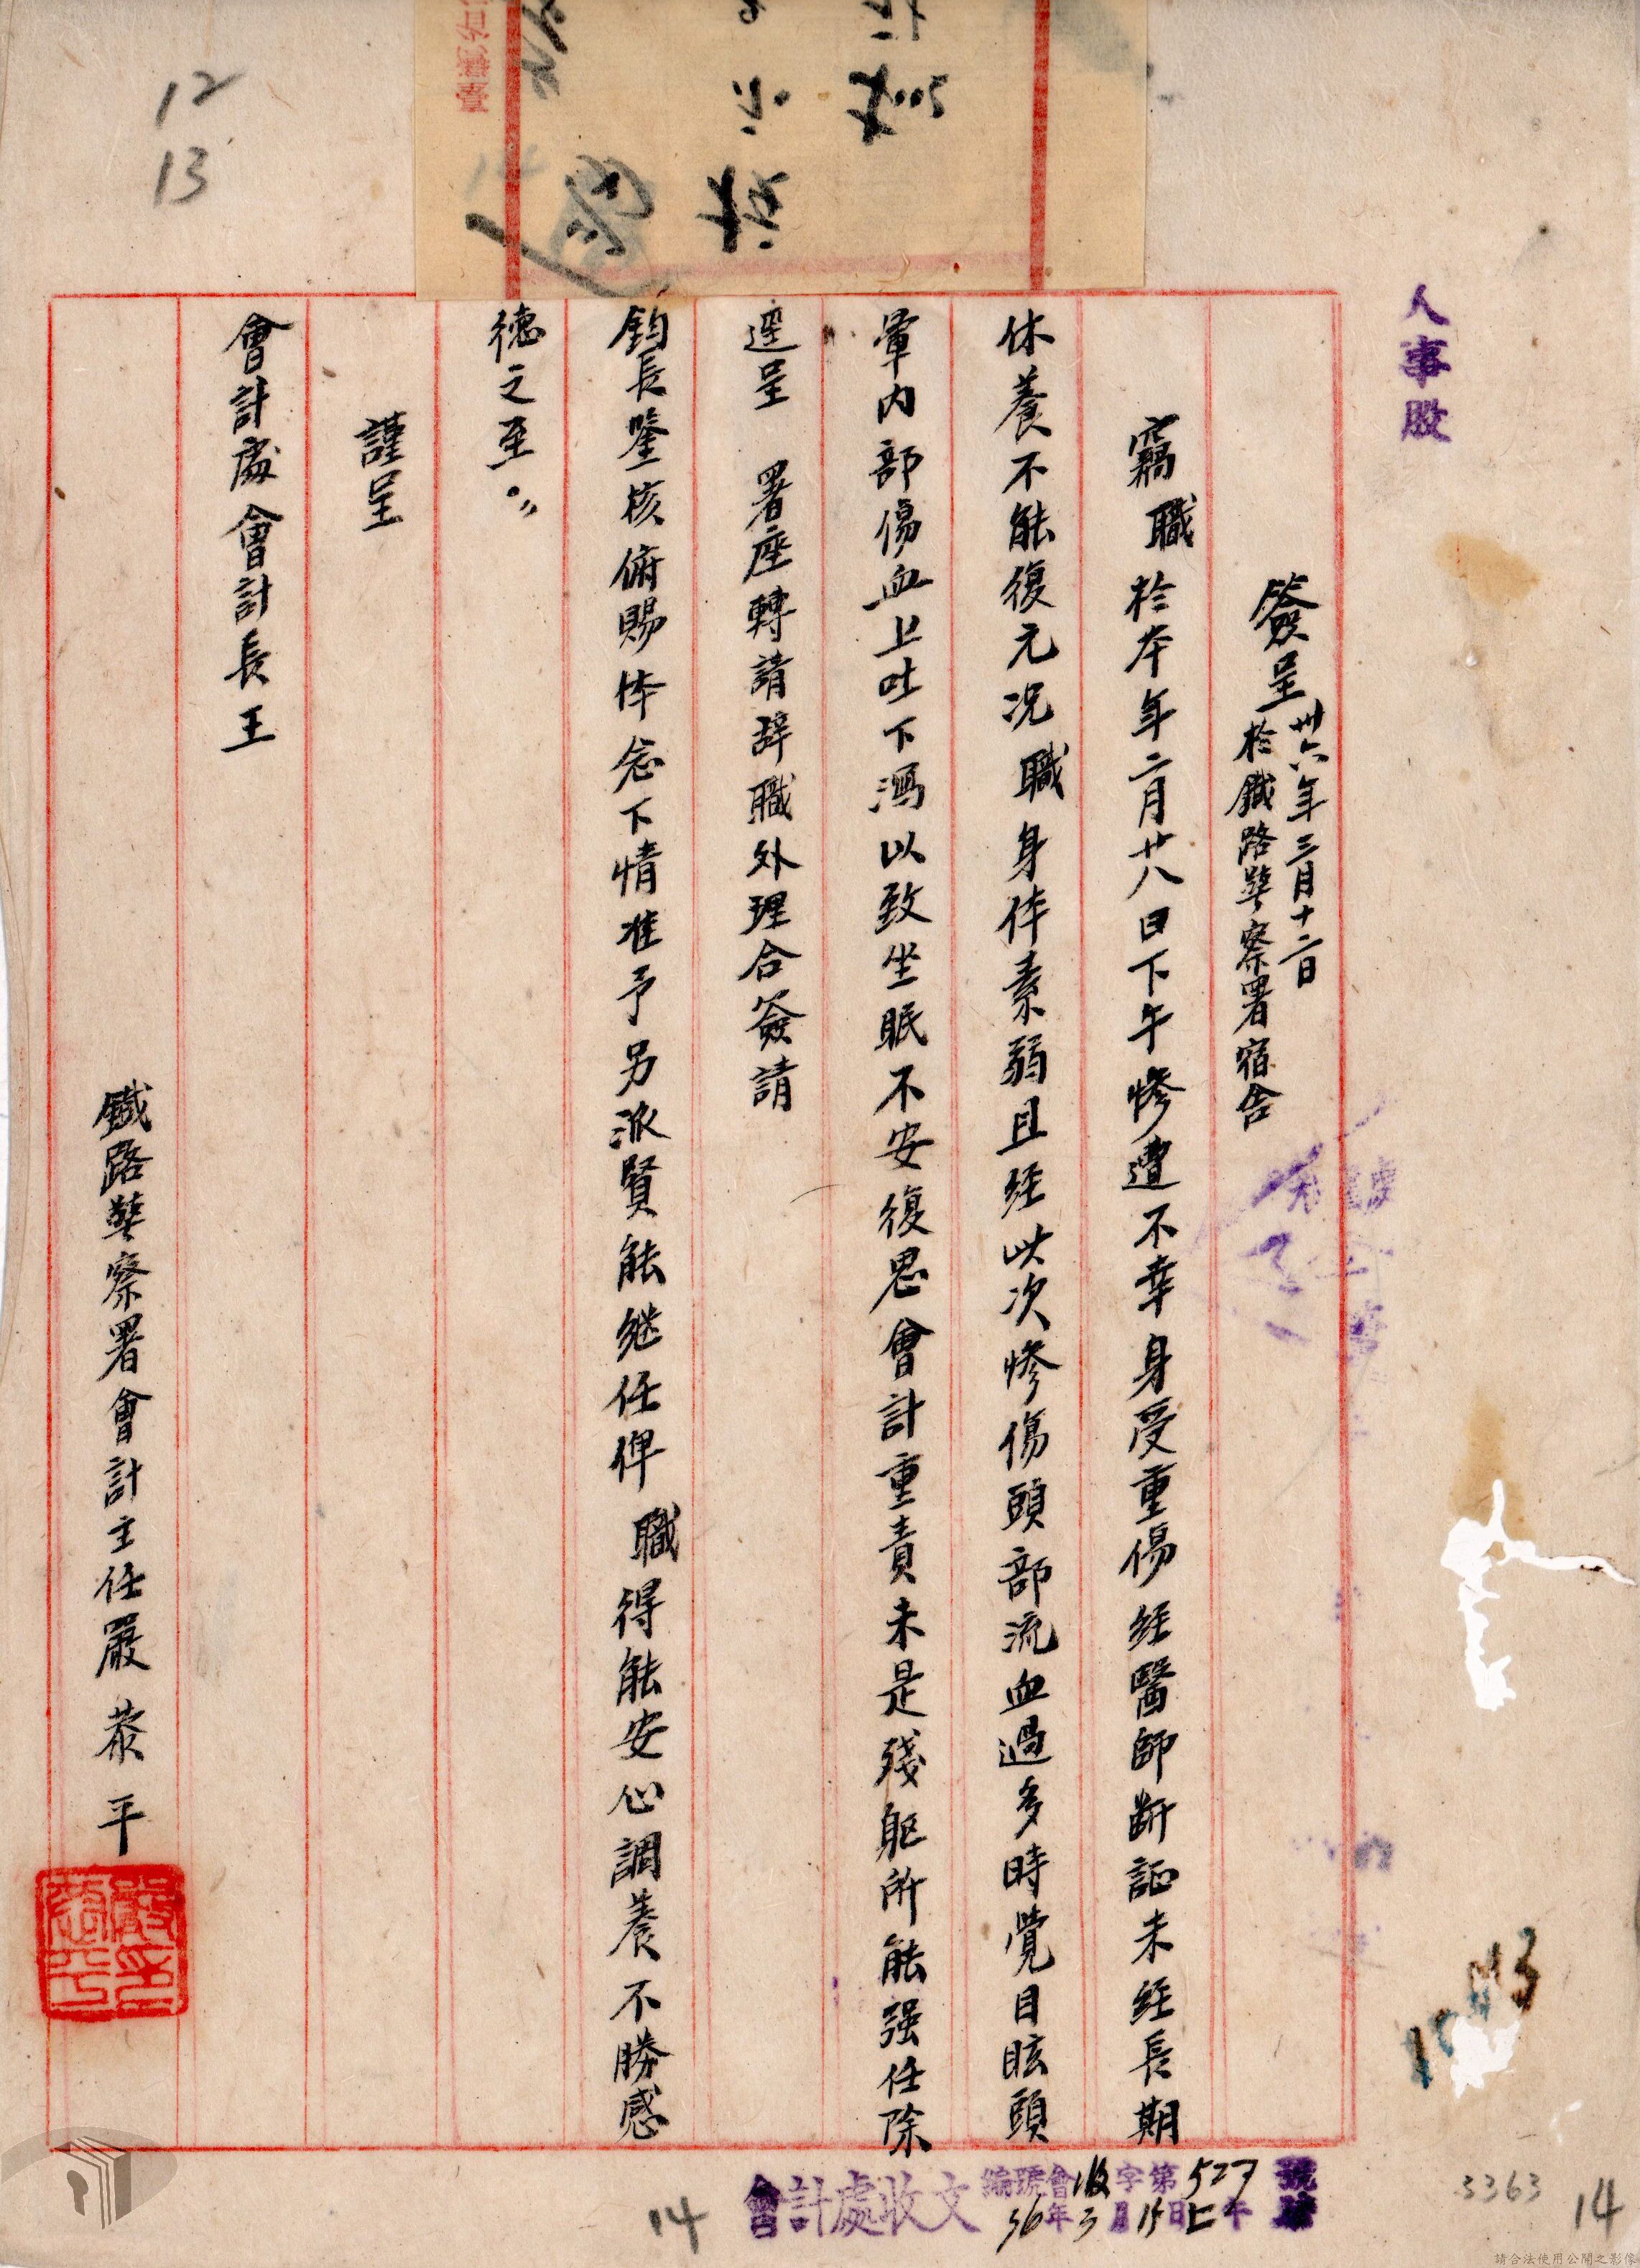 人事股
簽呈 卅六年三月十二日
於鐵路警察署宿舍
竊職於本年二月廿八日下午慘遭不幸身受重傷經醫師斷証未經長期
休養不能復元况職身体素弱且經此次慘傷頭部流血過多時覺目眩頭
暈内部傷血上吐下瀉以致坐眠不安復思會計重責未是殘軀所能强任除
逕呈 署座轉請辞職外理合簽請
鈞長鑒核俯賜体念下情准予另派賢能继任俾職得能安心調養不勝感
德之至。
謹呈
會計處會計長王
鐵路警察署會計主任嚴恭平
12
13
會計處收文
編號會收字第527號
36年3月15日上午
14
3363
14
請合法使用公開之影像